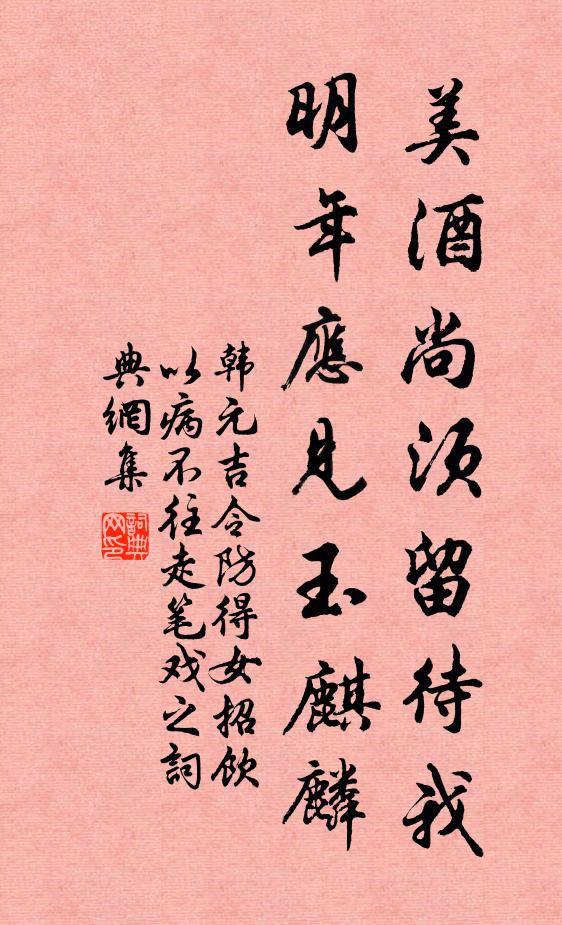 美酒尚須留待我
明年應見玉麒麟
韩元吉令防得女招飲
以病不往走笔戏之詞
典網集
詞典
网印